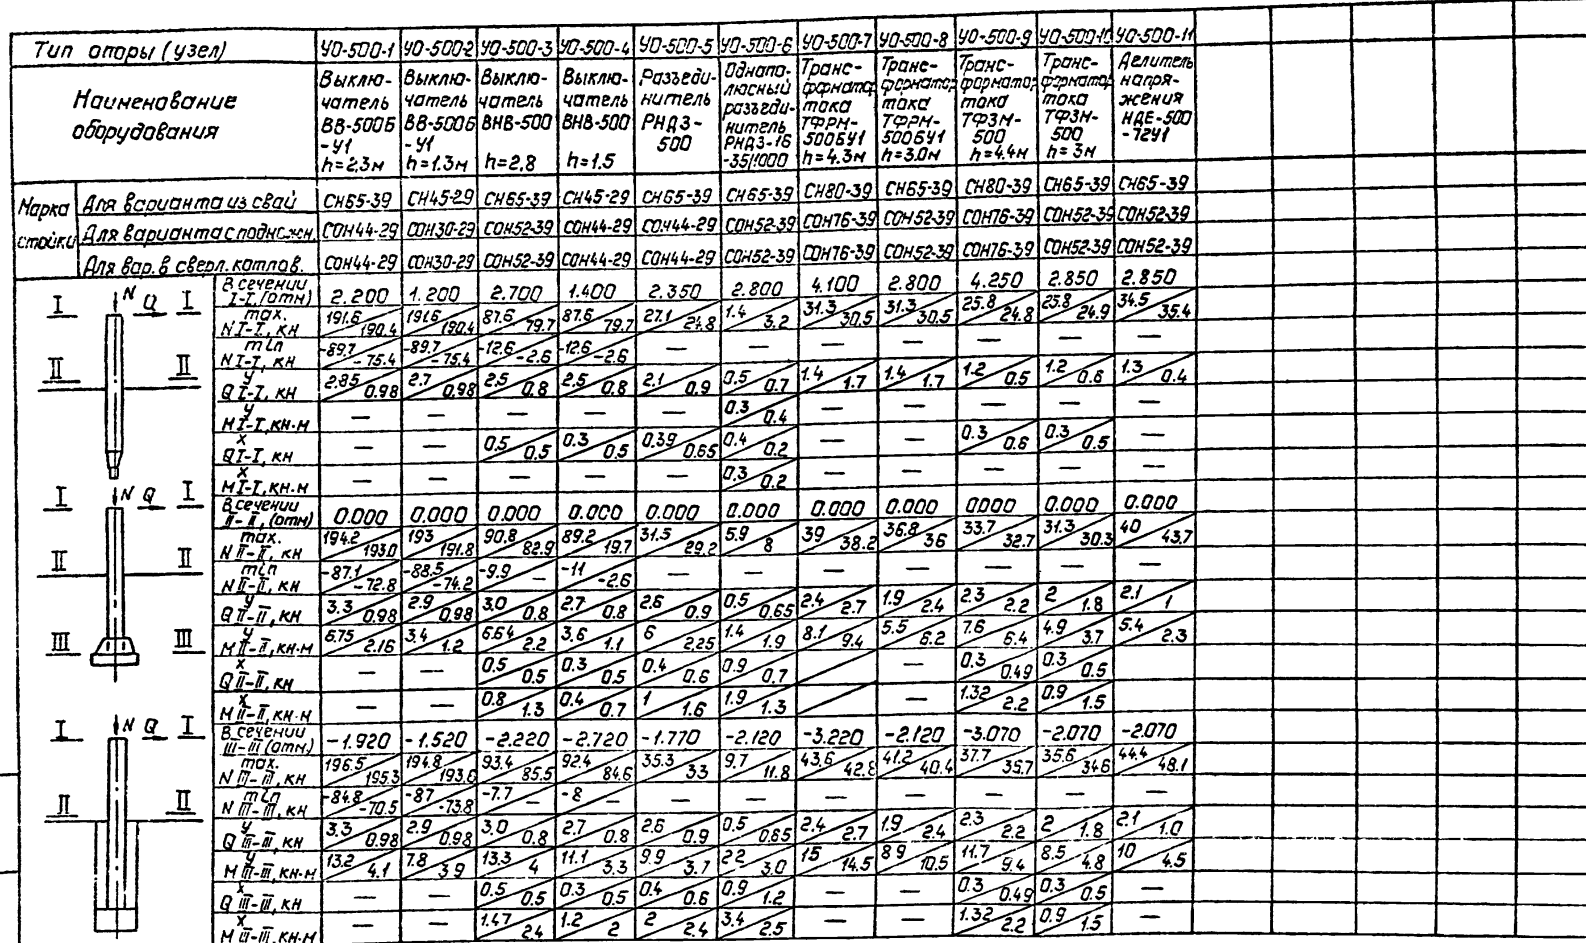 Тип опоры (узел) УО-500-1 УО-500-2 УО-500-3 УО-500-4 УО-500-5 УО-500-6 УО-500-7 УО-500-8 УО-500-9 УО-500-10 УО-500-11
Наименование оборудования
Выключатель ВВ-500Б -У1 h=2.3м
Выключатель ВВ-500Б -У1 h=1.3м
Выключатель ВНВ-500 h=2,8
Выключатель ВНВ-500 h=1.5
Разъединитель РНДЗ-500
Однополюсный разъединитель РНДЗ-1б -35/1000
Трансформатор тока ТФРМ-500БУ1 h=4.3м
Трансформатор тока ТФРМ-500БУ1 h=3.0м
Трансформатор тока ТФЗМ-500 h=4.4м
Трансформатор тока ТФЗМ-500 h=3м
Делитель напряжения НДЕ-500 -72У1
Марка стойки
Для варианта из свай СН65-39 СН45-29 СН65-39 СН45-29 СН65-39 СН65-39 СН80-39 СН65-39 СН80-39 СН65-39 СН65-39
Для варианта с подножн. СОН44-29 СОН30-29 СОН52-39 СОН44-29 СОН44-29 СОН52-39 СОН76-39 СОН52-39 СОН76-39 СОН52-39 СОН52-39
Для вар. в сверл. котлов. СОН44-29 СОН30-29 СОН52-39 СОН44-29 СОН44-29 СОН52-39 СОН76-39 СОН52-39 СОН76-39 СОН52-39 СОН52-39
I N Q I
II II
I N Q I
II II
III III
I N Q I
II II
В сечении I-I, (отм) 2.200 1.200 2.700 1.400 2.350 2.800 4.100 2.800 4.250 2.850 2.850
max. N I-I, кн 191.6/190.4 191.6/190.4 87.6/79.7 87.6/79.7 27.1/24.8 1.4/3.2 31.3/30.5 31.3/30.5 25.8/24.8 25.8/24.9 34.5/35.4
min N I-I, кн -89.7/-75.4 -89.7/-75.4 -12.6/-2.6 -12.6/-2.6 — — — — — — —
y Q I-I, кн 2.85/0.98 2.7/0.98 2.5/0.8 2.5/0.8 2.1/0.9 0.5/0.7 1.4/1.7 1.4/1.7 1.2/0.5 1.2/0.6 1.3/0.4
y M I-I, кн·м — — — — — 0.3/0.4 — — — — —
x Q I-I, кн — — 0.5/0.5 0.3/0.5 0.39/0.65 0.4/0.2 — — 0.3/0.6 0.3/0.5 —
x M I-I, кн·м — — — — — 0.3/0.2 — — — — —
В сечении II-II, (отм) 0.000 0.000 0.000 0.000 0.000 0.000 0.000 0.000 0.000 0.000 0.000
max. N II-II, кн 194.2/193.0 193/191.8 90.8/82.9 89.2/19.7 31.5/29.2 5.9/8 39/38.2 36.8/36 33.7/32.7 31.3/30.3 40/43.7
min N II-II, кн -87.1/-72.8 -88.5/-74.2 -9.9/— -11/-2.6 — — — — — — —
y Q II-II, кн 3.3/0.98 2.9/0.98 3.0/0.8 2.7/0.8 2.6/0.9 0.5/0.65 2.4/2.7 1.9/2.4 2.3/2.2 2/1.8 2.1/1
y M II-II, кн·м 6.75/2.16 3.4/1.2 6.64/2.2 3.6/1.1 6/2.25 1.4/1.9 8.1/9.4 5.5/6.2 7.6/6.4 4.9/3.7 5.4/2.3
x Q II-II, кн — — 0.5/0.5 0.3/0.5 0.4/0.6 0.9/0.7 / — 0.3/0.49 0.3/0.5
x M II-II, кн·м — — 0.8/1.3 0.4/0.7 1/1.6 1.9/1.3 / — 1.32/2.2 0.9/1.5 —
В сечении III-III (отм.) -1.920 -1.520 -2.220 -2.720 -1.770 -2.120 -3.220 -2.120 -3.070 -2.070 -2.070
max. N III-III, кн 196.5/195.3 194.8/193.6 93.4/85.5 92.4/84.6 35.3/33 9.7/11.8 43.6/42.8 41.2/40.4 37.7/35.7 35.6/34.6 44.4/48.1
min N III-III, кн -84.8/-70.5 -87/-73.8 -7.7/— -8/— — — — — — — —
y Q III-III, кн 3.3/0.98 2.9/0.98 3.0/0.8 2.7/0.8 2.6/0.9 0.5/0.65 2.4/2.7 1.9/2.4 2.3/2.2 2/1.8 2.1/1.0
y M III-III, кн·м 13.2/4.1 7.8/3.9 13.3/4 11.1/3.3 9.9/3.7 22/3.0 15/14.5 8.9/10.5 11.7/9.4 8.5/4.8 10/4.5
x Q III-III, кн — — 0.5/0.5 0.3/0.5 0.4/0.6 0.9/1.2 — — 0.3/0.49 0.3/0.5 —
x M III-III, кн·м — — 1.47/2.4 1.2/2 2/2.4 3.4/2.5 — — 1.32/2.2 0.9/1.5 —